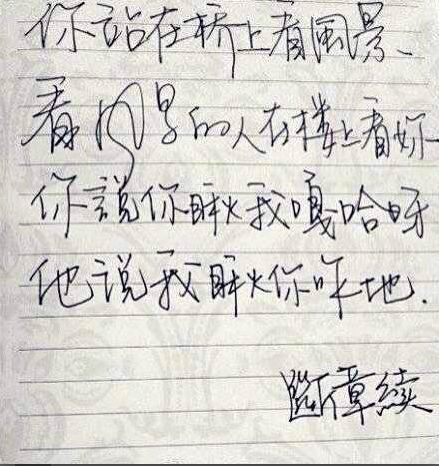 你站在桥上看風景、
看风景的人在楼上看妳
你説你瞅我嘎哈呀
他说我瞅你咋地.
斷章續